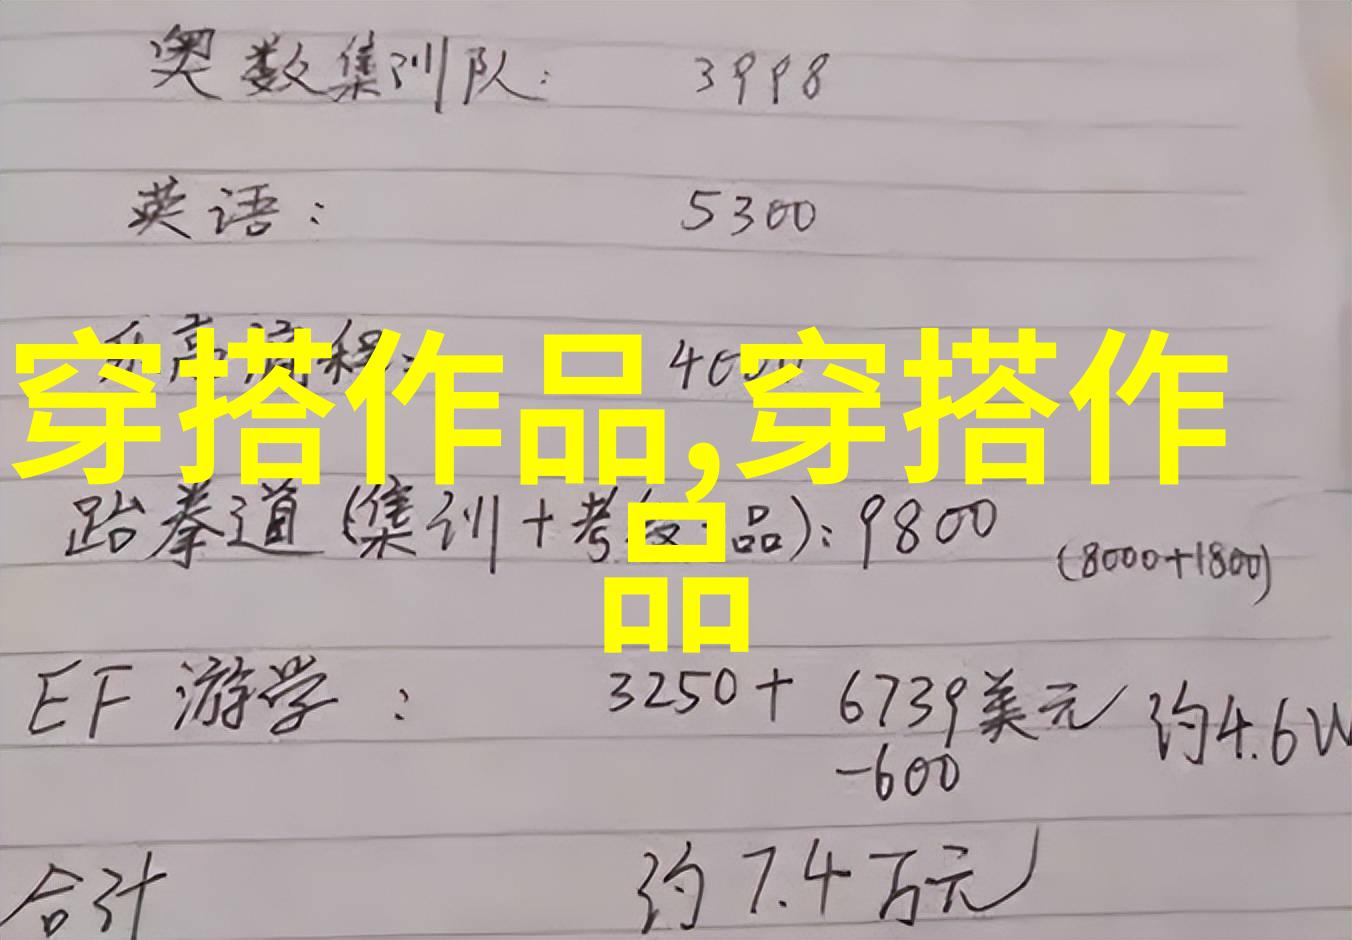 奥数集训队: 3998
英语: 5300
穿搭作品,穿搭作
品
跆拳道(集训+考 品): 9800 (8000+1800)
EF 游学: 3250+6739美元 约4.6W
-600
合计 约7.4万元